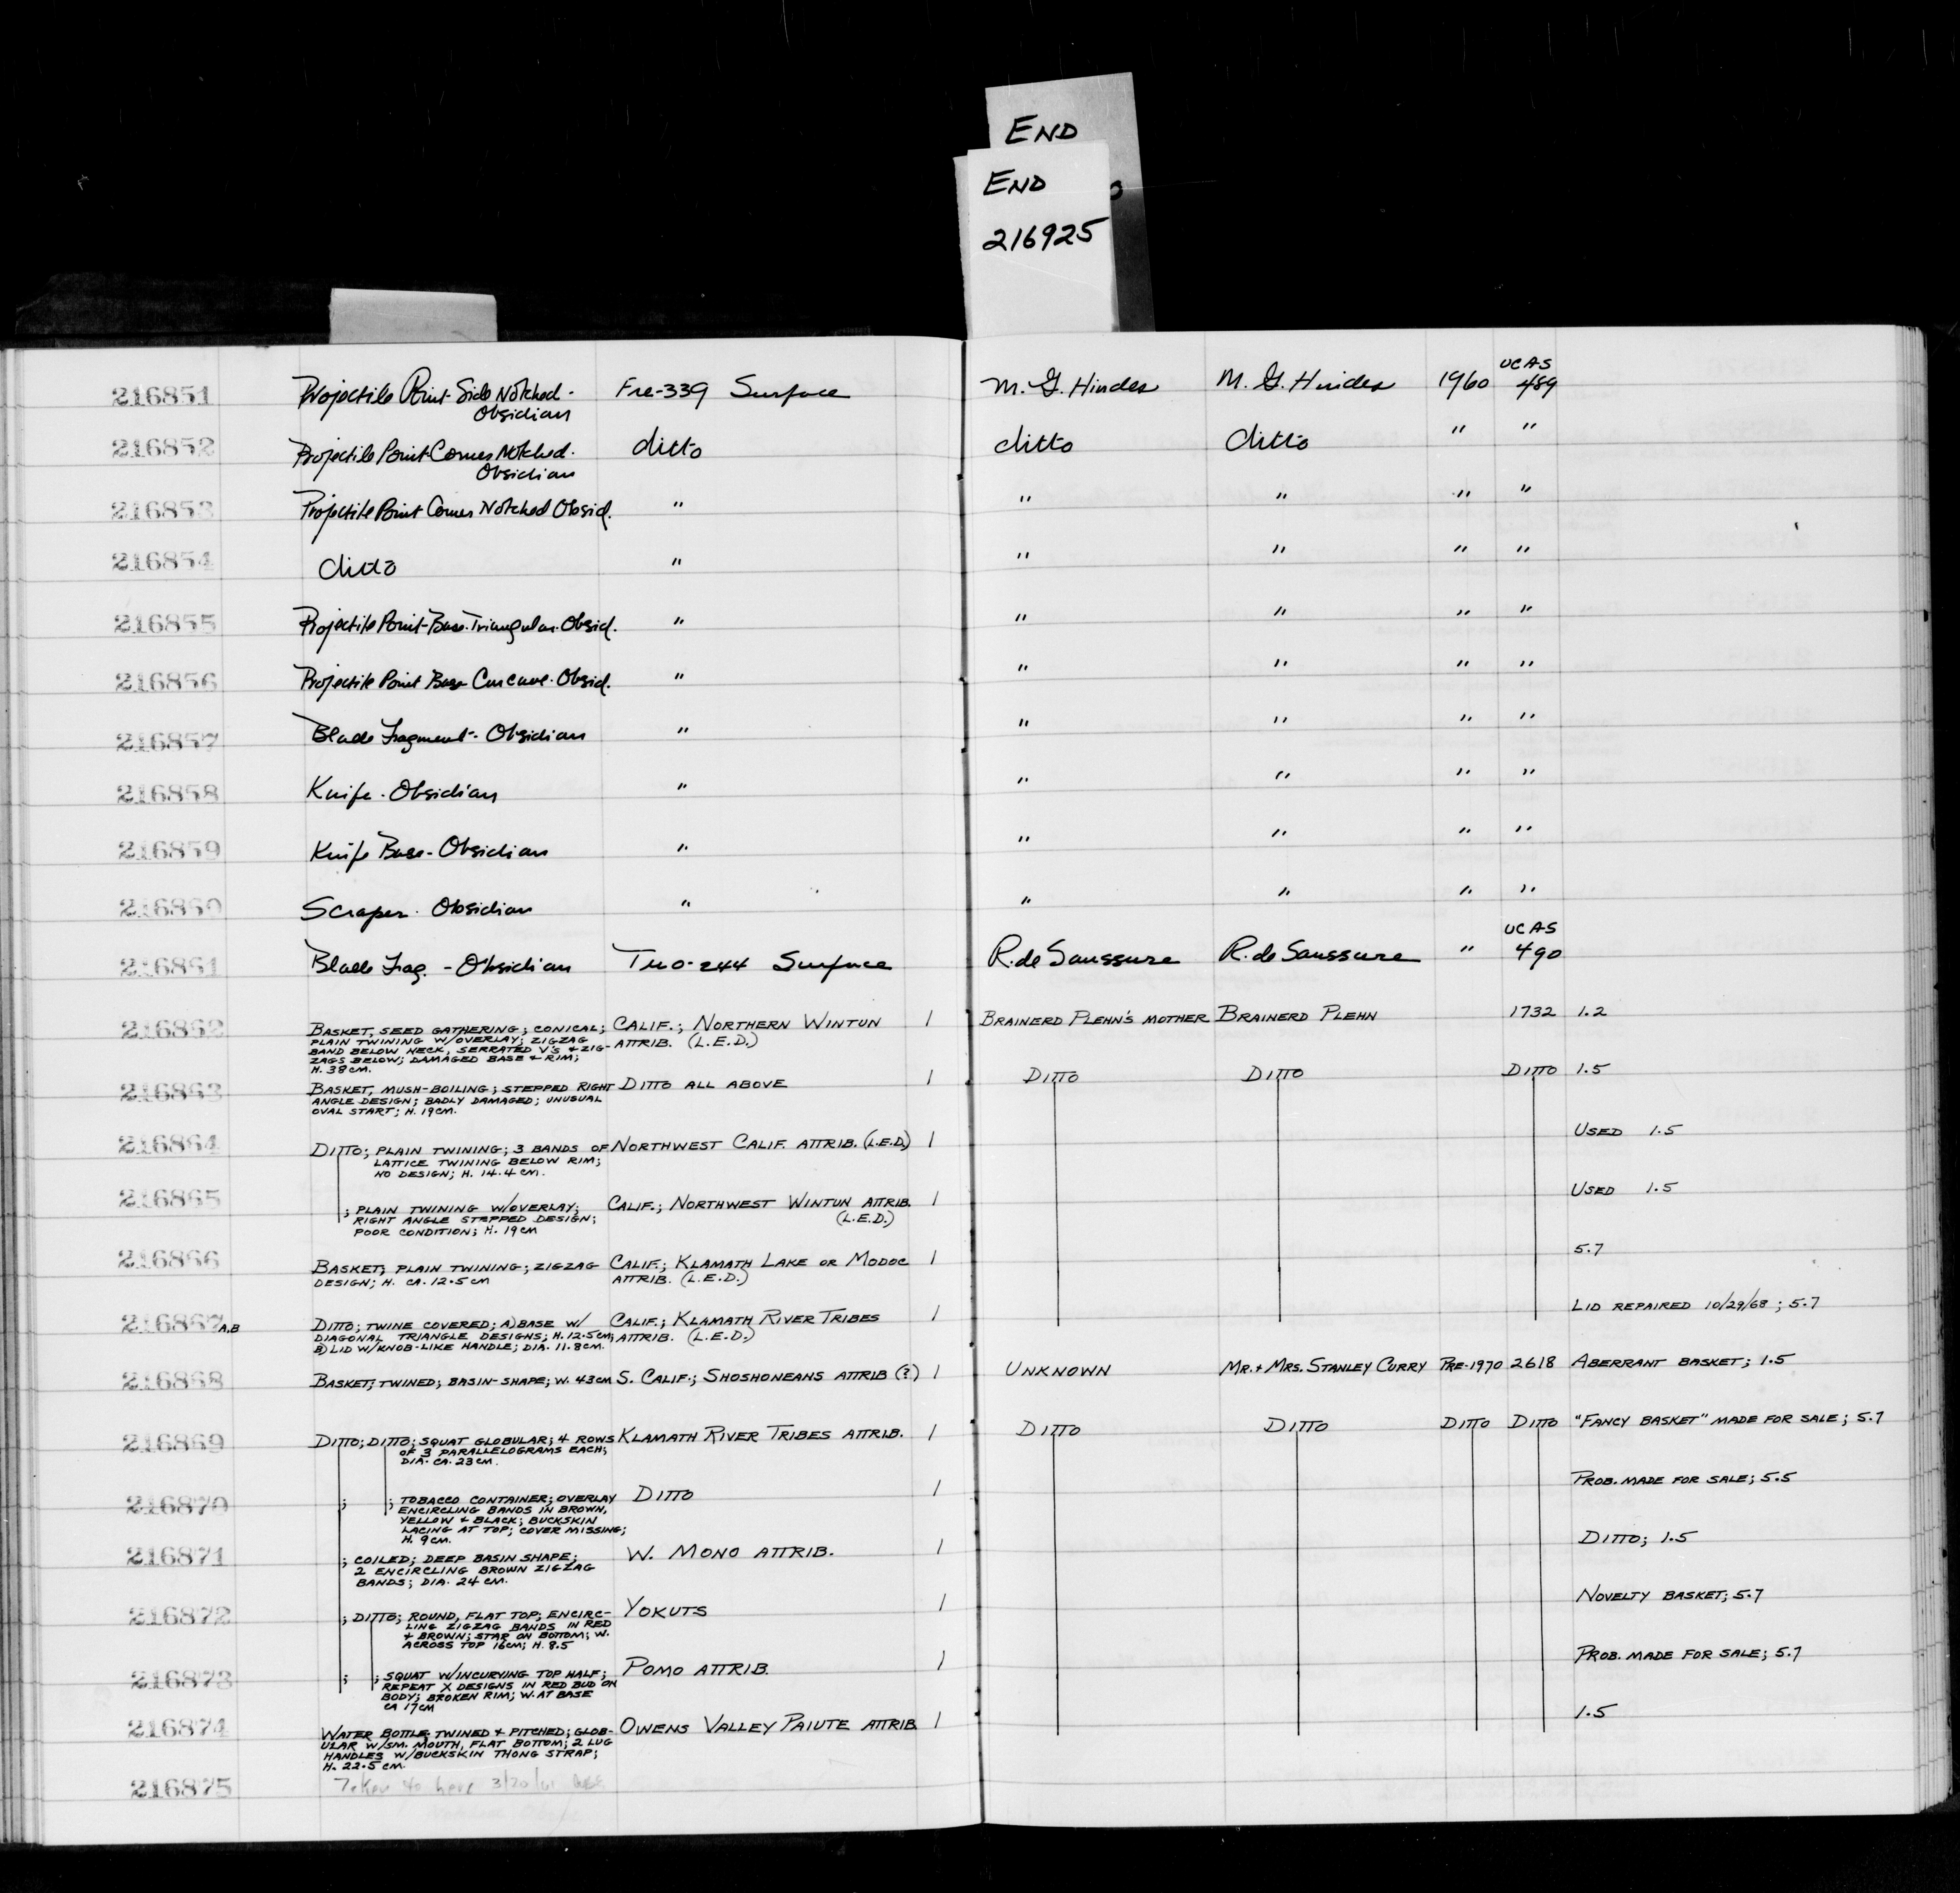 END
END
216925
216851 Projectile Point-Side Notched- Fre-339 Surface M. G. Hindes M. G. Hindes 1960 UCAS 489
Obsidian
216852 Projectile Point-Corner Notched- ditto ditto ditto " "
Obsidian
216853 Projectile Point Corner Notched Obsid. " " " " "
216854 ditto " " " " "
216855 Projectile Point-Base-Triangular-Obsid. " " " " "
216856 Projectile Point Base Concave-Obsid. " " " " "
216857 Blade Fragment-Obsidian " " " " "
216858 Knife-Obsidian " " " " "
216859 Knife Base-Obsidian " " " " "
216860 Scraper-Obsidian " " " " "
216861 Blade Frag.-Obsidian Tuo-244 Surface R. de Saussure R. de Saussure " UCAS 490
216862 BASKET, SEED GATHERING; CONICAL; CALIF.; NORTHERN WINTUN 1 BRAINERD PLEHN'S MOTHER BRAINERD PLEHN 1732 1.2
PLAIN TWINING W/OVERLAY; ZIGZAG ATTRIB. (L.E.D.)
BAND BELOW NECK, SERRATED V'S + ZIG-
ZAGS BELOW; DAMAGED BASE + RIM;
H. 38 CM.
216863 BASKET, MUSH-BOILING; STEPPED RIGHT DITTO ALL ABOVE 1 DITTO DITTO DITTO 1.5
ANGLE DESIGN; BADLY DAMAGED; UNUSUAL
OVAL START; H. 19CM.
216864 DITTO; PLAIN TWINING; 3 BANDS OF NORTHWEST CALIF. ATTRIB. (L.E.D.) 1 USED 1.5
LATTICE TWINING BELOW RIM;
NO DESIGN; H. 14.4 CM.
216865 ; PLAIN TWINING W/OVERLAY; CALIF.; NORTHWEST WINTUN ATTRIB. 1 USED 1.5
RIGHT ANGLE STEPPED DESIGN; (L.E.D.)
POOR CONDITION; H. 19CM
216866 BASKET; PLAIN TWINING; ZIGZAG CALIF.; KLAMATH LAKE OR MODOC 1 5.7
DESIGN; H. CA. 12.5 CM ATTRIB. (L.E.D.)
216867 A,B DITTO; TWINE COVERED; A) BASE W/ CALIF.; KLAMATH RIVER TRIBES 1 LID REPAIRED 10/29/68; 5.7
DIAGONAL TRIANGLE DESIGNS; H. 12.5CM; ATTRIB. (L.E.D.)
B) LID W/KNOB-LIKE HANDLE; DIA. 11.8CM.
216868 BASKET; TWINED; BASIN-SHAPE; W. 43CM S. CALIF.; SHOSHONEANS ATTRIB (?) 1 UNKNOWN MR. + MRS. STANLEY CURRY PRE-1970 2618 ABERRANT BASKET; 1.5
216869 DITTO; DITTO; SQUAT GLOBULAR; 4 ROWS KLAMATH RIVER TRIBES ATTRIB. 1 DITTO DITTO DITTO DITTO "FANCY BASKET" MADE FOR SALE; 5.7
OF 3 PARALLELOGRAMS EACH;
DIA. CA. 23CM.
216870 ; ; TOBACCO CONTAINER; OVERLAY DITTO 1 PROB. MADE FOR SALE; 5.5
ENCIRCLING BANDS IN BROWN,
YELLOW + BLACK; BUCKSKIN
LACING AT TOP; COVER MISSING;
H. 9CM.
216871 ; COILED; DEEP BASIN SHAPE; W. MONO ATTRIB. 1 DITTO; 1.5
2 ENCIRCLING BROWN ZIGZAG
BANDS; DIA. 24 CM.
216872 ; DITTO; ROUND, FLAT TOP; ENCIRC- YOKUTS 1 NOVELTY BASKET; 5.7
LING ZIGZAG BANDS IN RED
+ BROWN; STAR ON BOTTOM; W.
ACROSS TOP 16CM; H. 8.5
216873 ; ; SQUAT W/INCURVING TOP HALF; POMO ATTRIB. 1 PROB. MADE FOR SALE; 5.7
REPEAT X DESIGNS IN RED BUD ON
BODY; BROKEN RIM; W. AT BASE
CA 17CM
216874 WATER BOTTLE; TWINED + PITCHED; GLOB- OWENS VALLEY PAIUTE ATTRIB 1 1.5
ULAR W/SM. MOUTH, FLAT BOTTOM; 2 LUG
HANDLES W/BUCKSKIN THONG STRAP;
H. 22.5 CM.
216875 Taken to here 3/20/61